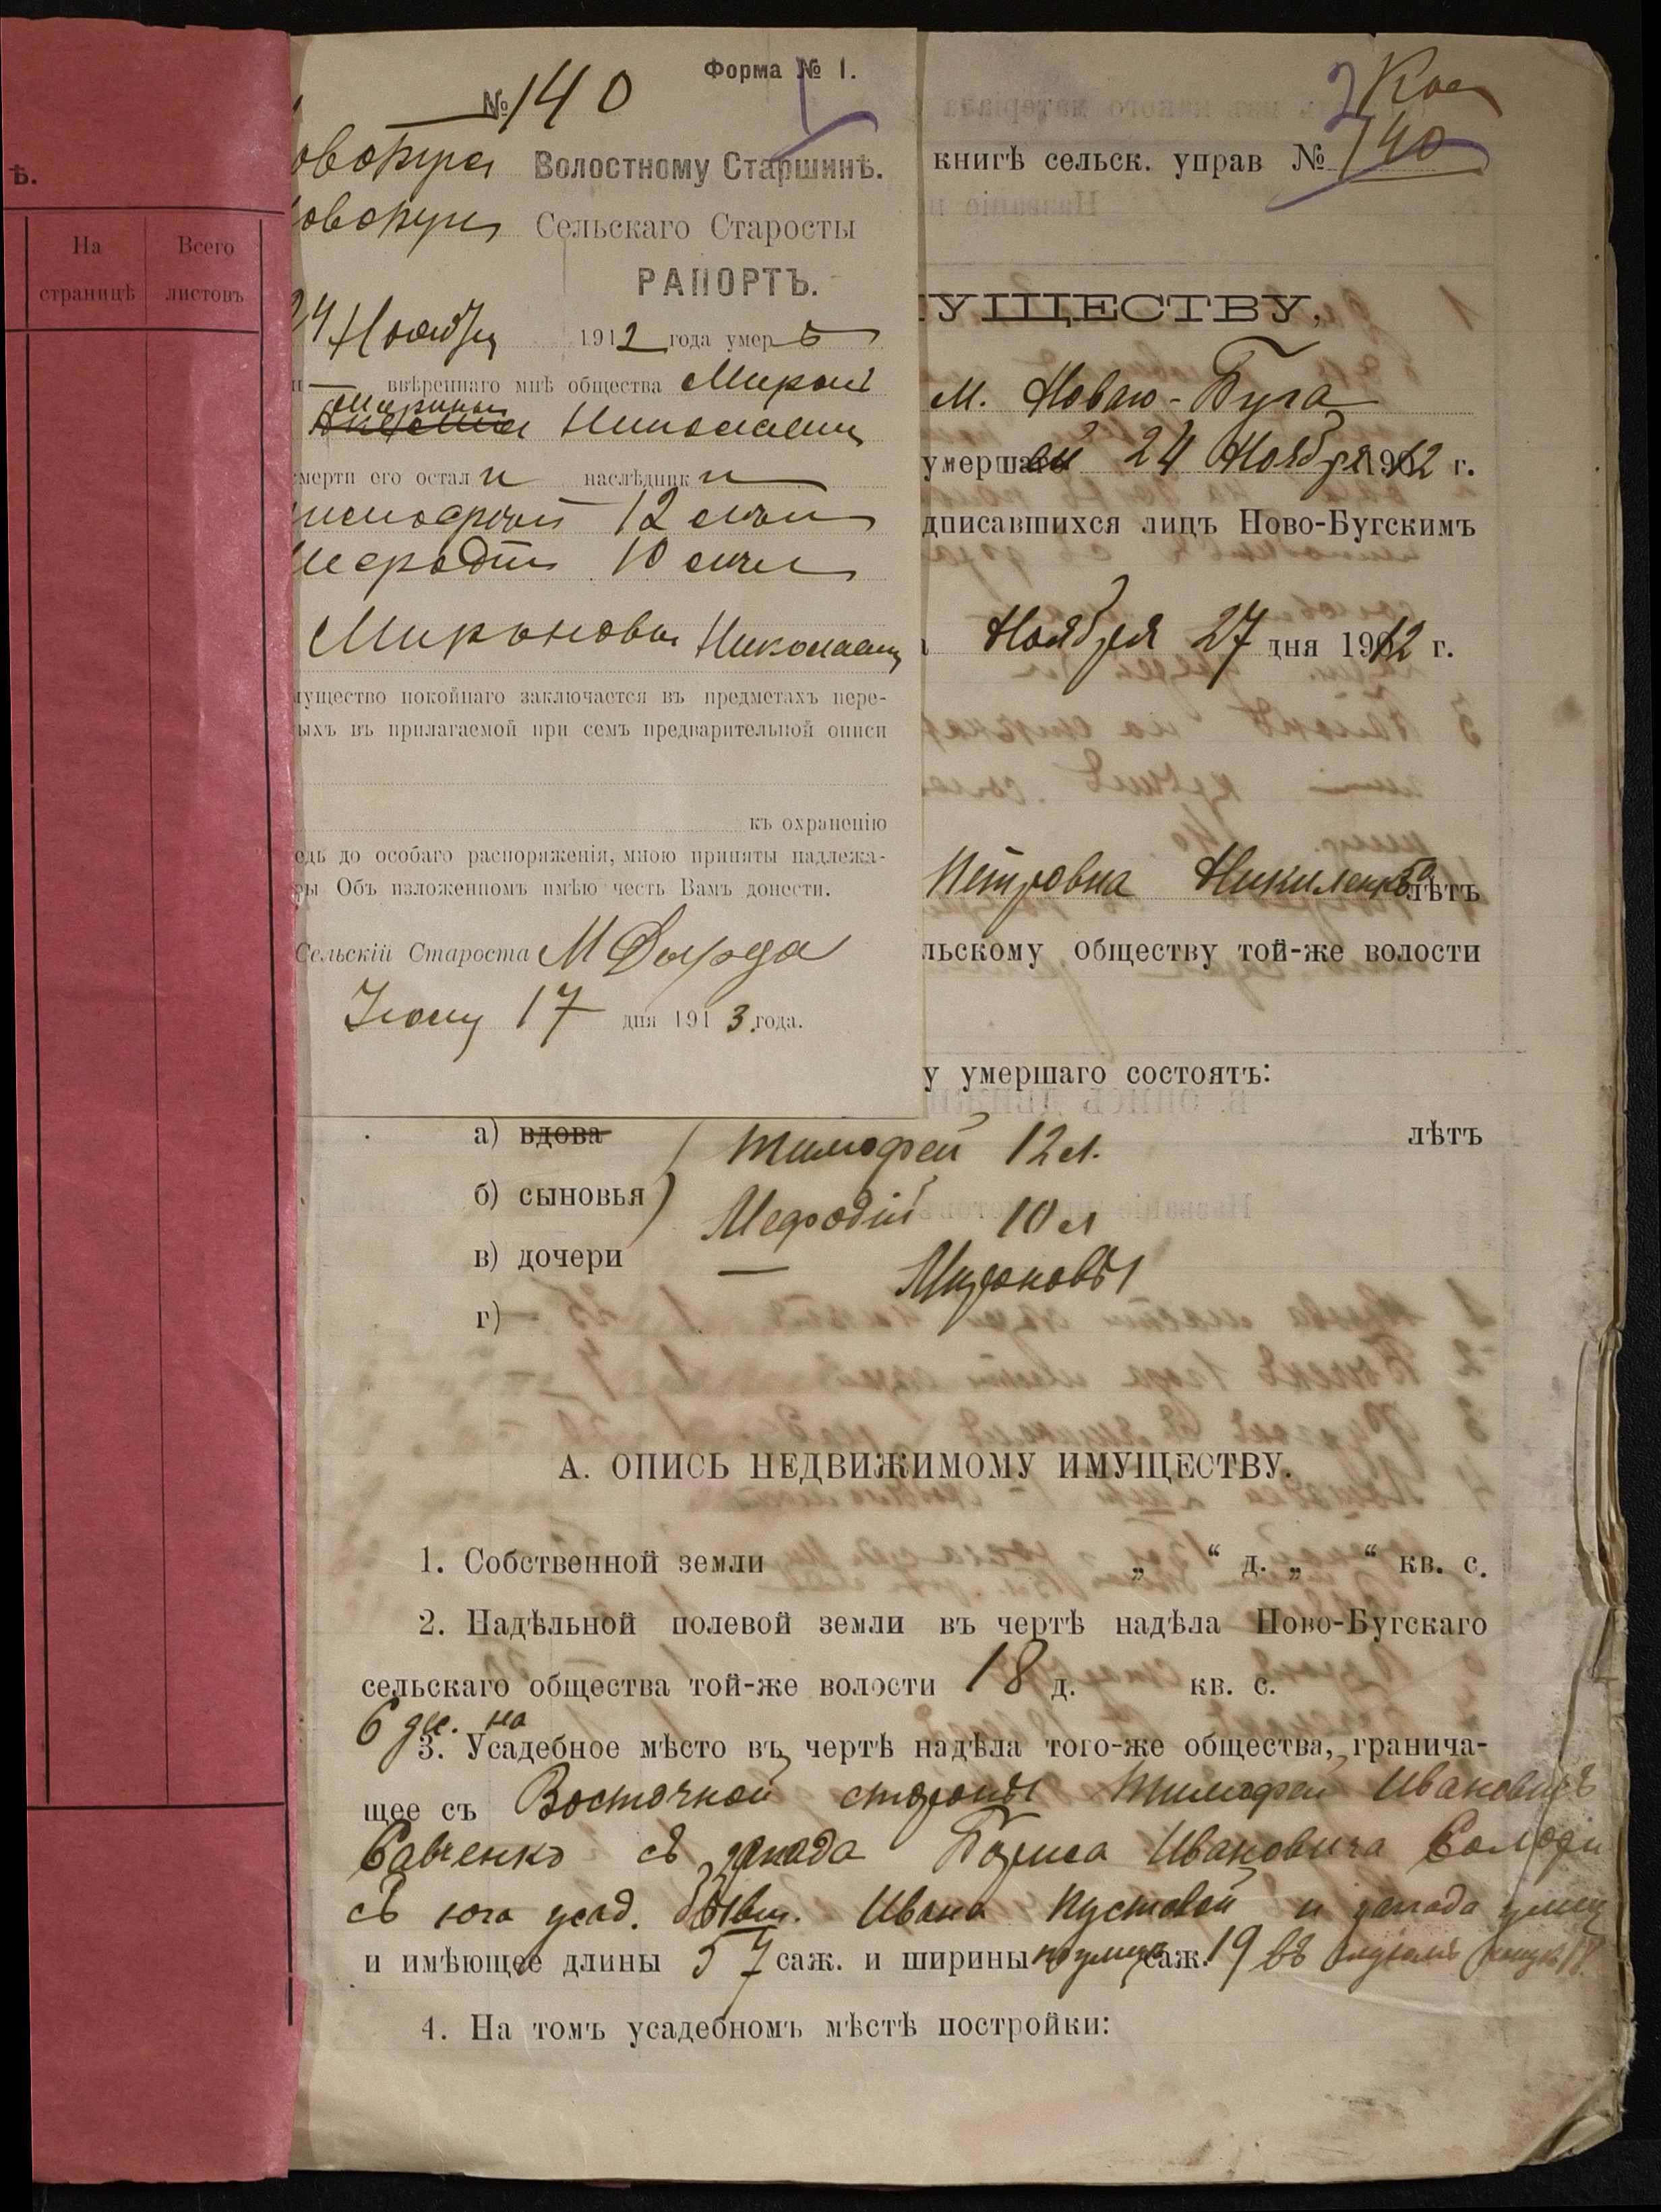 ѣ.
На
страницѣ
Всего
листовъ
Форма № 1.
№ 140
Волостному Старшинѣ.
Сельскаго Старосты
РАПОРТЪ.
24 Ноября 1912 года умер ъ
ввѣреннаго мнѣ общества Миронъ
Николаевъ
смерти его остал и наслѣдник и
12 лѣтъ
10 лѣтъ
Мироновы Николаевы
мущество покойнаго заключается въ предметахъ пере-
ыхъ въ прилагаемой при семъ предварительной описи
къ охраненію
едь до особаго распоряженія, мною приняты надлежа-
ры Объ изложенномъ имѣю честь Вамъ донести.
Сельскій Староста М Дырда
17 дня 1913 года.
2
книгѣ сельск. управ № 140
УЩЕСТВУ,
М. Новаго-Буга
умерша 24 Ноября 1912 г.
дписавшихся лицъ Ново-Бугскимъ
Ноября 27 дня 1912 г.
Петровна лѣтъ
льскому обществу той-же волости
у умершаго состоятъ:
а) вдова Тимофей 12 л. лѣтъ
б) сыновья Мефодій 10 л
в) дочери — Мироновы
г)
А. ОПИСЬ НЕДВИЖИМОМУ ИМУЩЕСТВУ.
1. Собственной земли „ “ д. „ “ кв. с.
2. Надѣльной полевой земли въ чертѣ надѣла Ново-Бугскаго
сельскаго общества той-же волости 18 д. кв. с.
6 дес. на
3. Усадебное мѣсто въ чертѣ надѣла того-же общества, гранича-
щее съ Восточной стороны Тимофей Ивановичъ
Савченко съ запада Бориса Ивановича
съ юга усад. бывш. Ивана Кустовой и запада улиц
и имѣющее длины 57 саж. и ширины по улицѣ саж. 19 въ
4. На томъ усадебномъ мѣстѣ постройки: